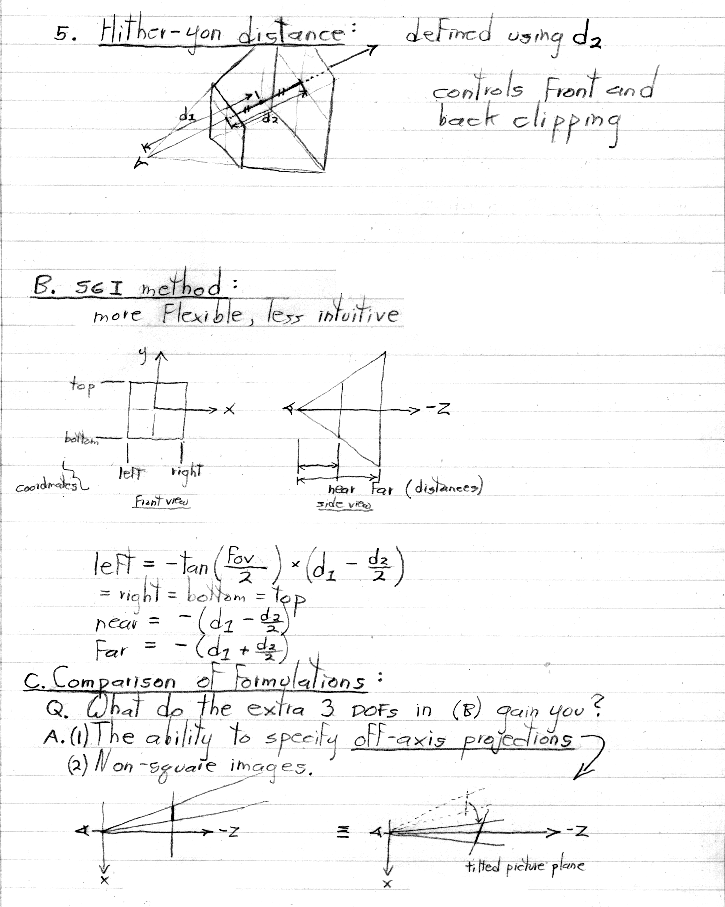 5. Hither-yon distance: defined using d2
controls Front and
back clipping
d1
d2
B. SGI method:
more Flexible, less intuitive
y
top
x
-Z
bottom
left right
coordinates
near Far (distances)
Front view
side view
left = -tan(Fov/2) × (d1 - d2/2)
= right = bottom = top
near = -(d1 - d2/2)
Far = -(d1 + d2/2)
C. Comparison of Formulations:
Q. What do the extra 3 DOFs in (B) gain you?
A. (1) The ability to specify off-axis projections
(2) Non-square images.
-Z ≡ -Z
tilted picture plane
x x